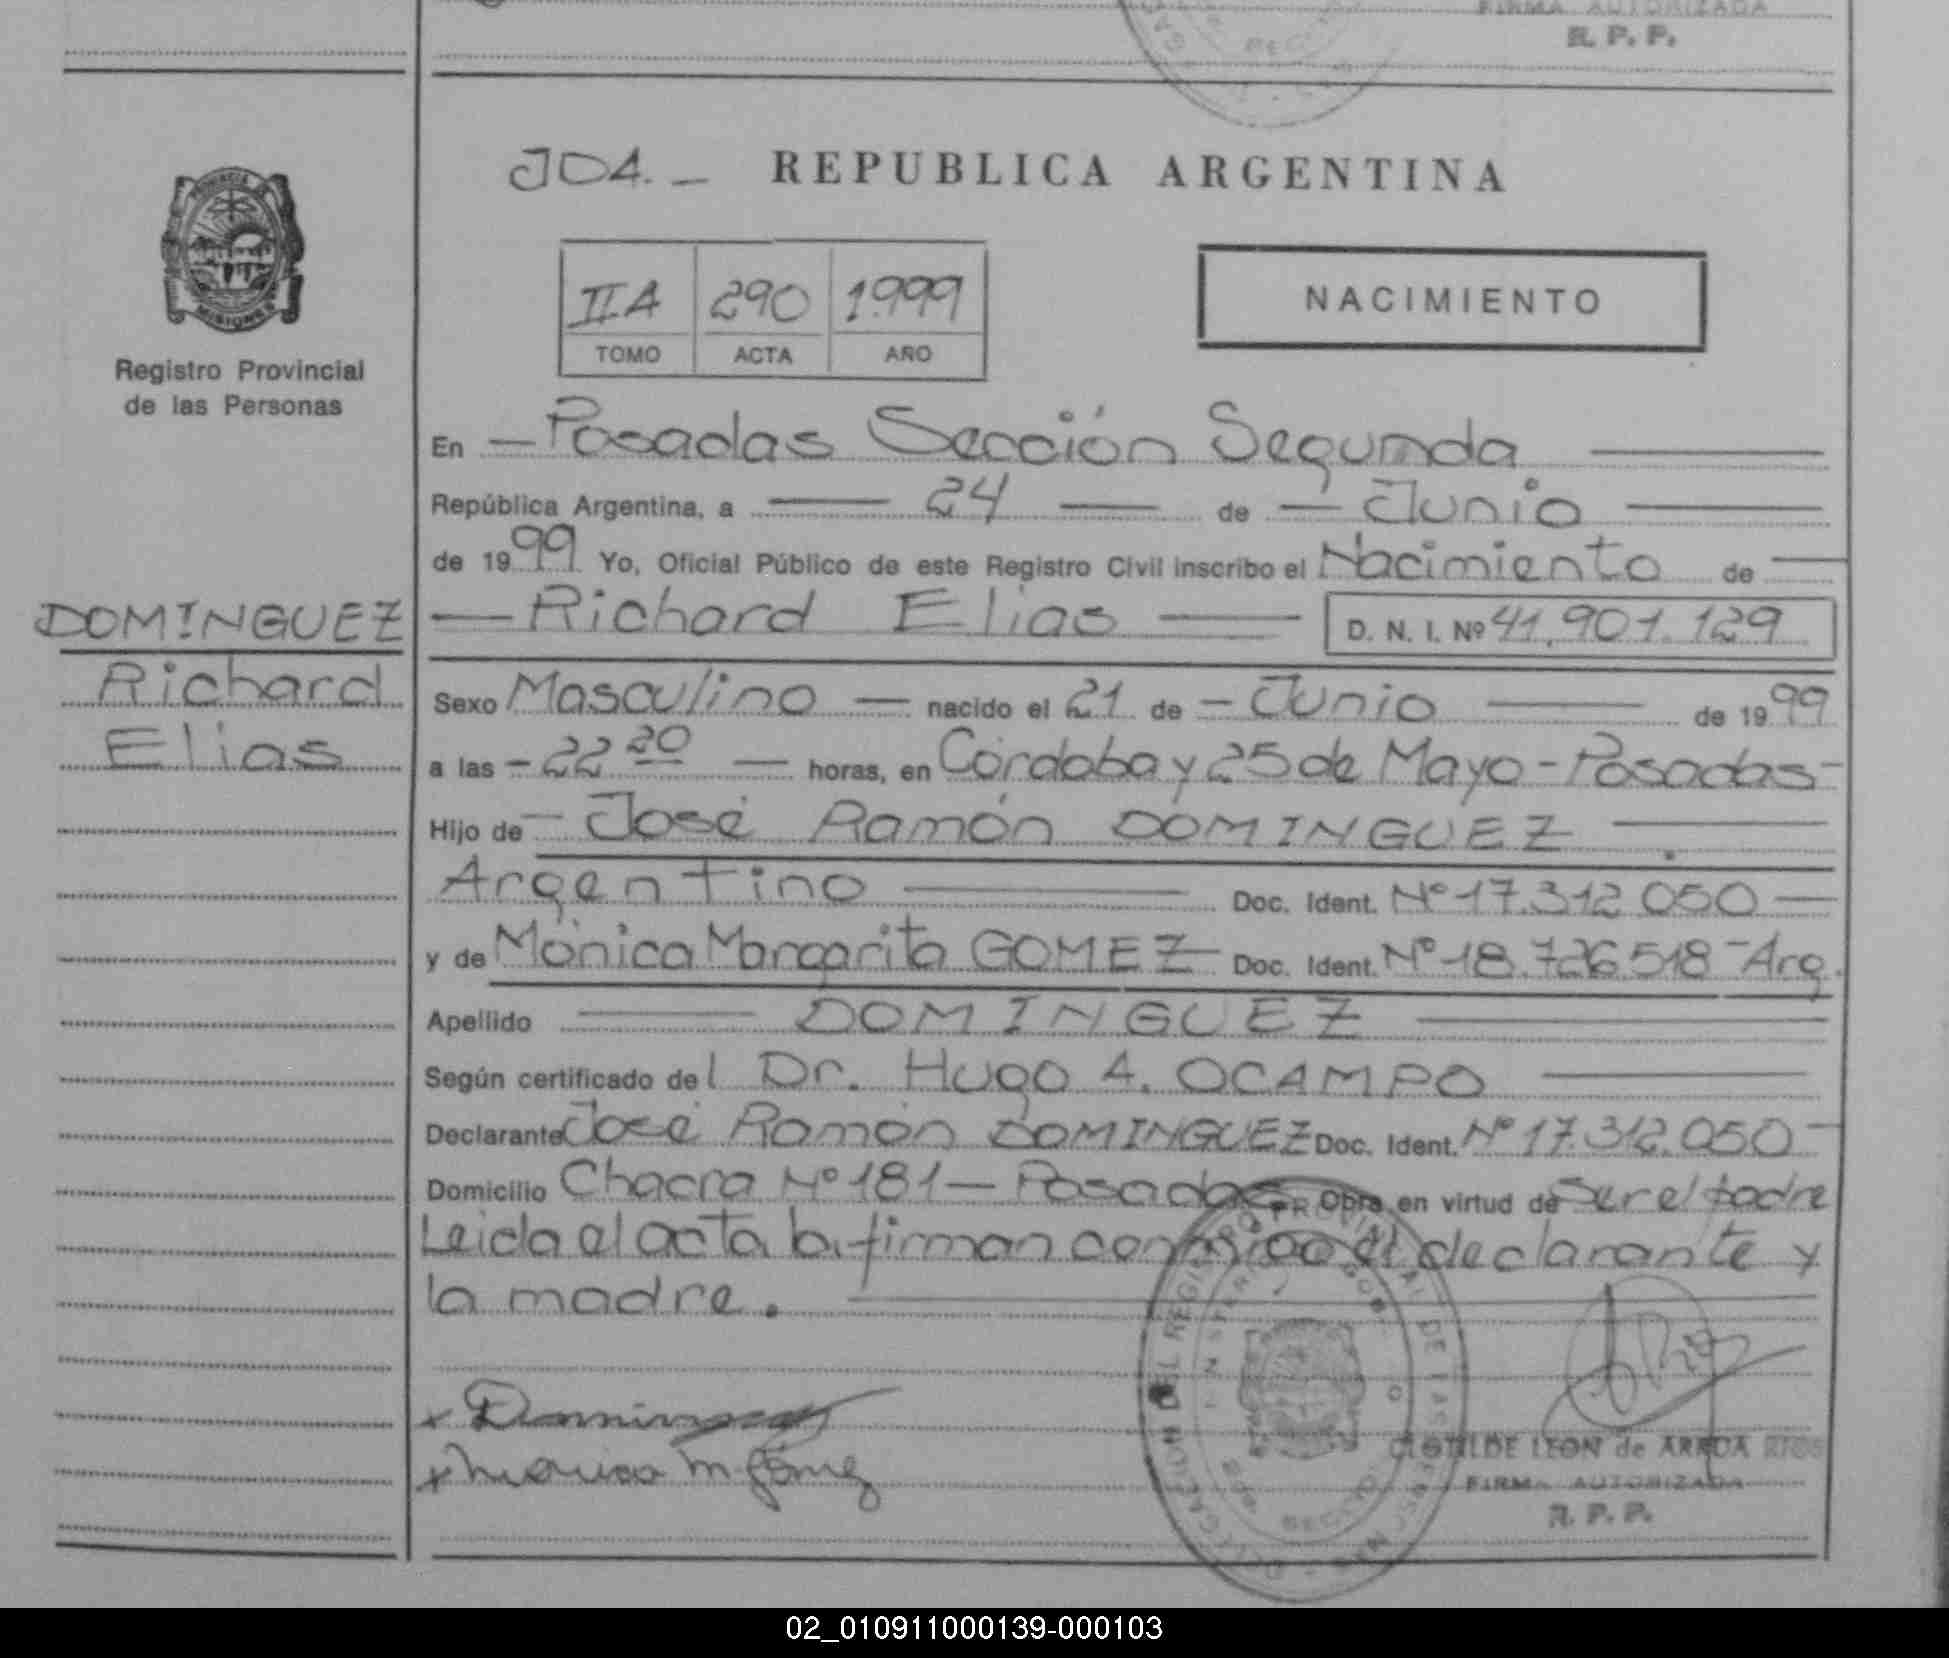 FIRMA AUTORIZADA
R. P. P.
J04.- REPUBLICA ARGENTINA
PROVINCIA DE
MISIONES
Registro Provincial
de las Personas
II A 290 1.999
TOMO ACTA AÑO
NACIMIENTO
En - Posadas Sección Segunda
República Argentina, a 24 de Junio
de 1999 Yo, Oficial Público de este Registro Civil inscribo el Nacimiento de
DOMINGUEZ
Richard
Elias
Richard Elias D. N. I. Nº 41.901.129
Sexo Masculino nacido el 21 de Junio de 1999
a las - 22 20 horas, en Córdoba y 25 de Mayo - Posadas -
Hijo de José Ramón DOMINGUEZ
Argentino Doc. Ident. Nº 17.312.050
y de Mónica Margarita GOMEZ Doc. Ident. Nº 18.726.518 - Arg.
Apellido DOMINGUEZ
Según certificado del Dr. Hugo A. OCAMPO
Declarante José Ramón DOMINGUEZ Doc. Ident. Nº 17.312.050 -
Domicilio Chacra Nº 181 - Posadas Obra en virtud de Ser el padre
Leida el acta la firman conmigo el declarante y
la madre.
CLOTILDE LEON de ARRUA RIOS
FIRMA AUTORIZADA
R. P. P.
02_010911000139-000103